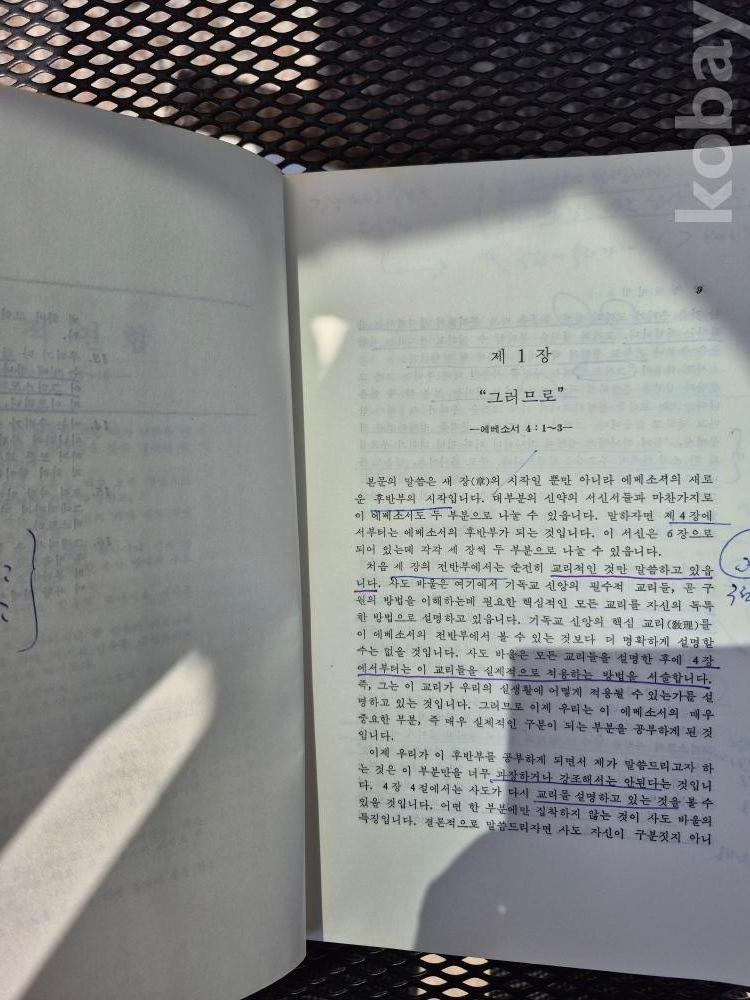 kobay
9
제 1 장
“그러므로”
—에베소서 4 : 1~3—
본문의 말씀은 새 장(章)의 시작일 뿐만 아니라 에베소서의 새로
운 후반부의 시작입니다. 대부분의 신약의 서신서들과 마찬가지로
이 에베소서도 두 부분으로 나눌 수 있읍니다. 말하자면 제 4 장에
서부터는 에베소서의 후반부가 되는 것입니다. 이 서신은 6 장으로
되어 있는데 각각 세 장씩 두 부분으로 나눌 수 있읍니다.
처음 세 장의 전반부에서는 순전히 교리적인 것만 말씀하고 있읍
니다. 사도 바울은 여기에서 기독교 신앙의 필수적 교리들, 곧 구
원의 방법을 이해하는데 필요한 핵심적인 모든 교리를 자신의 독특
한 방법으로 설명하고 있읍니다. 기독교 신앙의 핵심 교리(敎理)를
이 에베소서의 전반부에서 볼 수 있는 것보다 더 명확하게 설명할
수는 없을 것입니다. 사도 바울은 모든 교리들을 설명한 후에 4 장
에서부터는 이 교리들을 실제적으로 적용하는 방법을 서술합니다.
즉, 그는 이 교리가 우리의 실생활에 어떻게 적용될 수 있는가를 설
명하고 있는 것입니다. 그러므로 이제 우리는 이 에베소서의 매우
중요한 부분, 즉 매우 실제적인 구분이 되는 부분을 공부하게 된 것
입니다.
이제 우리가 이 후반부를 공부하게 되면서 제가 말씀드리고자 하
는 것은 이 부분만을 너무 과장하거나 강조해서는 안된다는 것입니
다. 4 장 4 절에서는 사도가 다시 교리를 설명하고 있는 것을 볼 수
있을 것입니다. 어떤 한 부분에만 집착하지 않는 것이 사도 바울의
특징입니다. 결론적으로 말씀드리자면 사도 자신이 구분짓지 아니